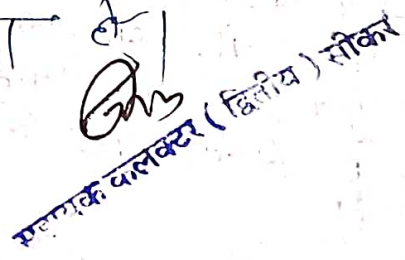 सहायक कलक्टर ( द्वितीय ) सीकर